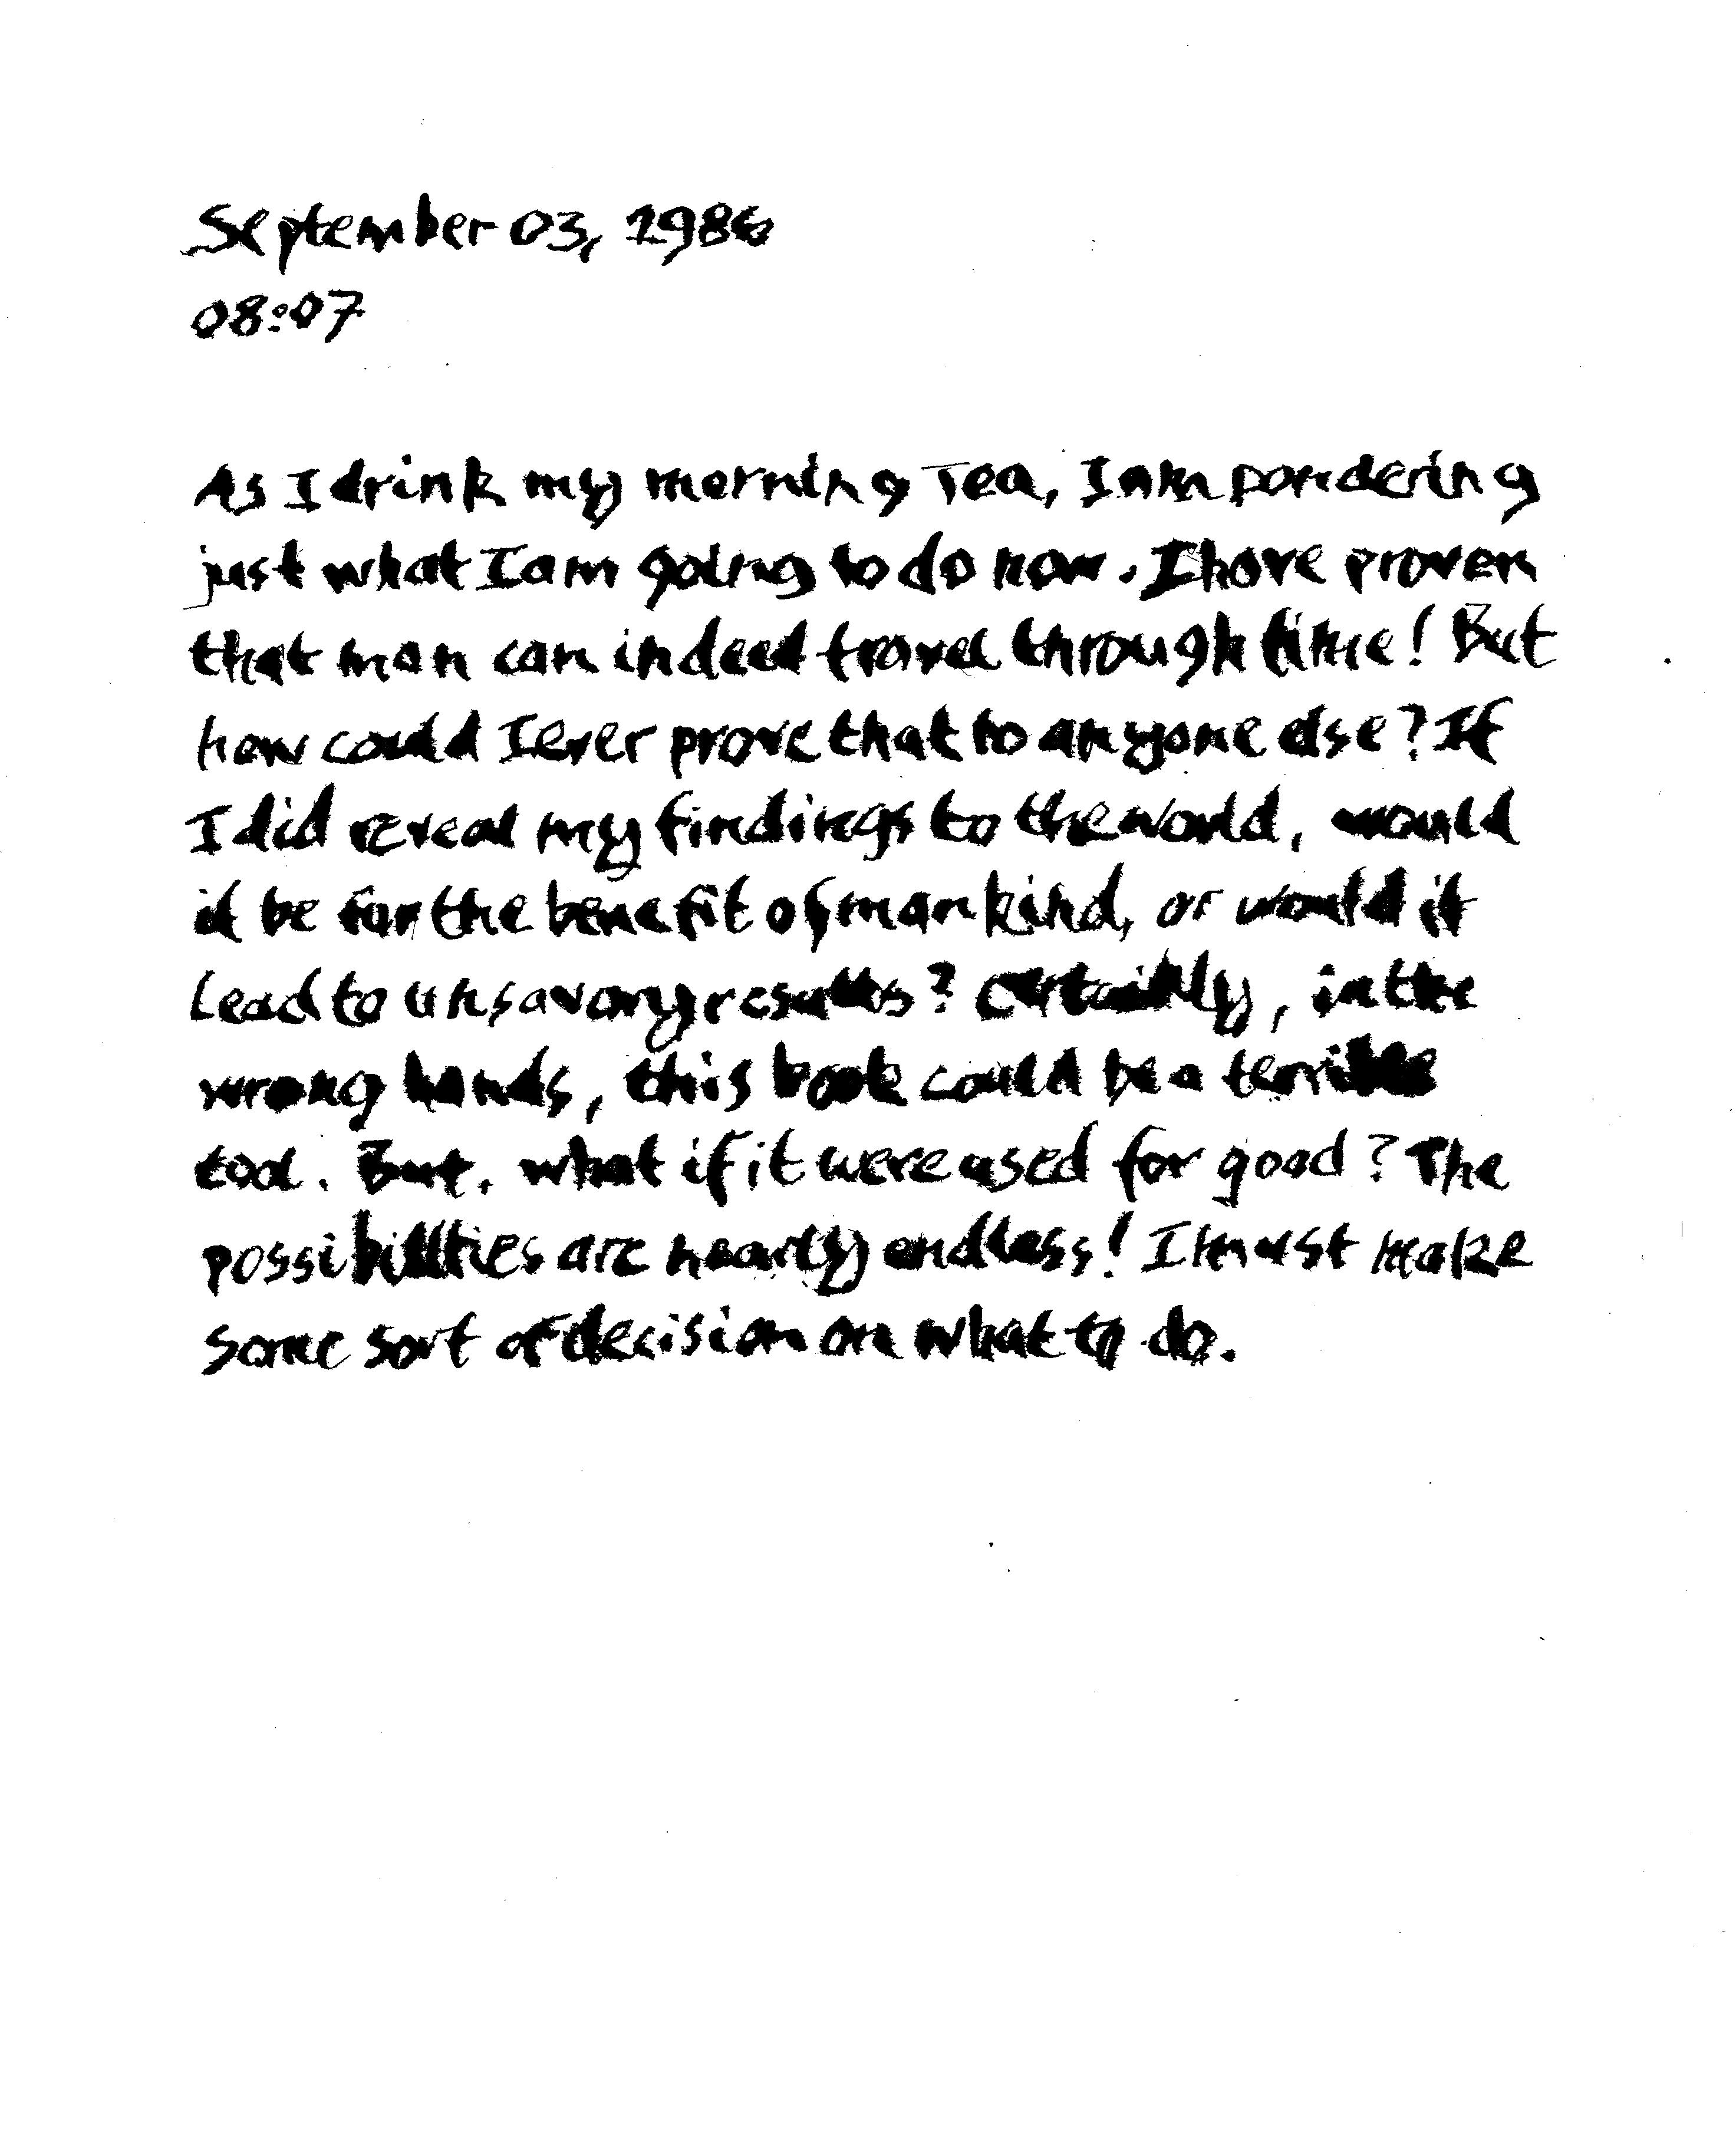 September 03, 1986
08:07
As I drink my morning Tea, I am pondering
just what I am going to do now. I have proven
that man can indeed travel through time! But
how could I ever prove that to anyone else? If
I did reveal my findings to the world, would
it be for the benefit of mankind, or would it
lead to unsavory results? Certainly, in the
wrong hands, this book could be a terrible
tool. But, what if it were used for good? The
possibilities are nearly endless! I must make
some sort of decision on what to do.